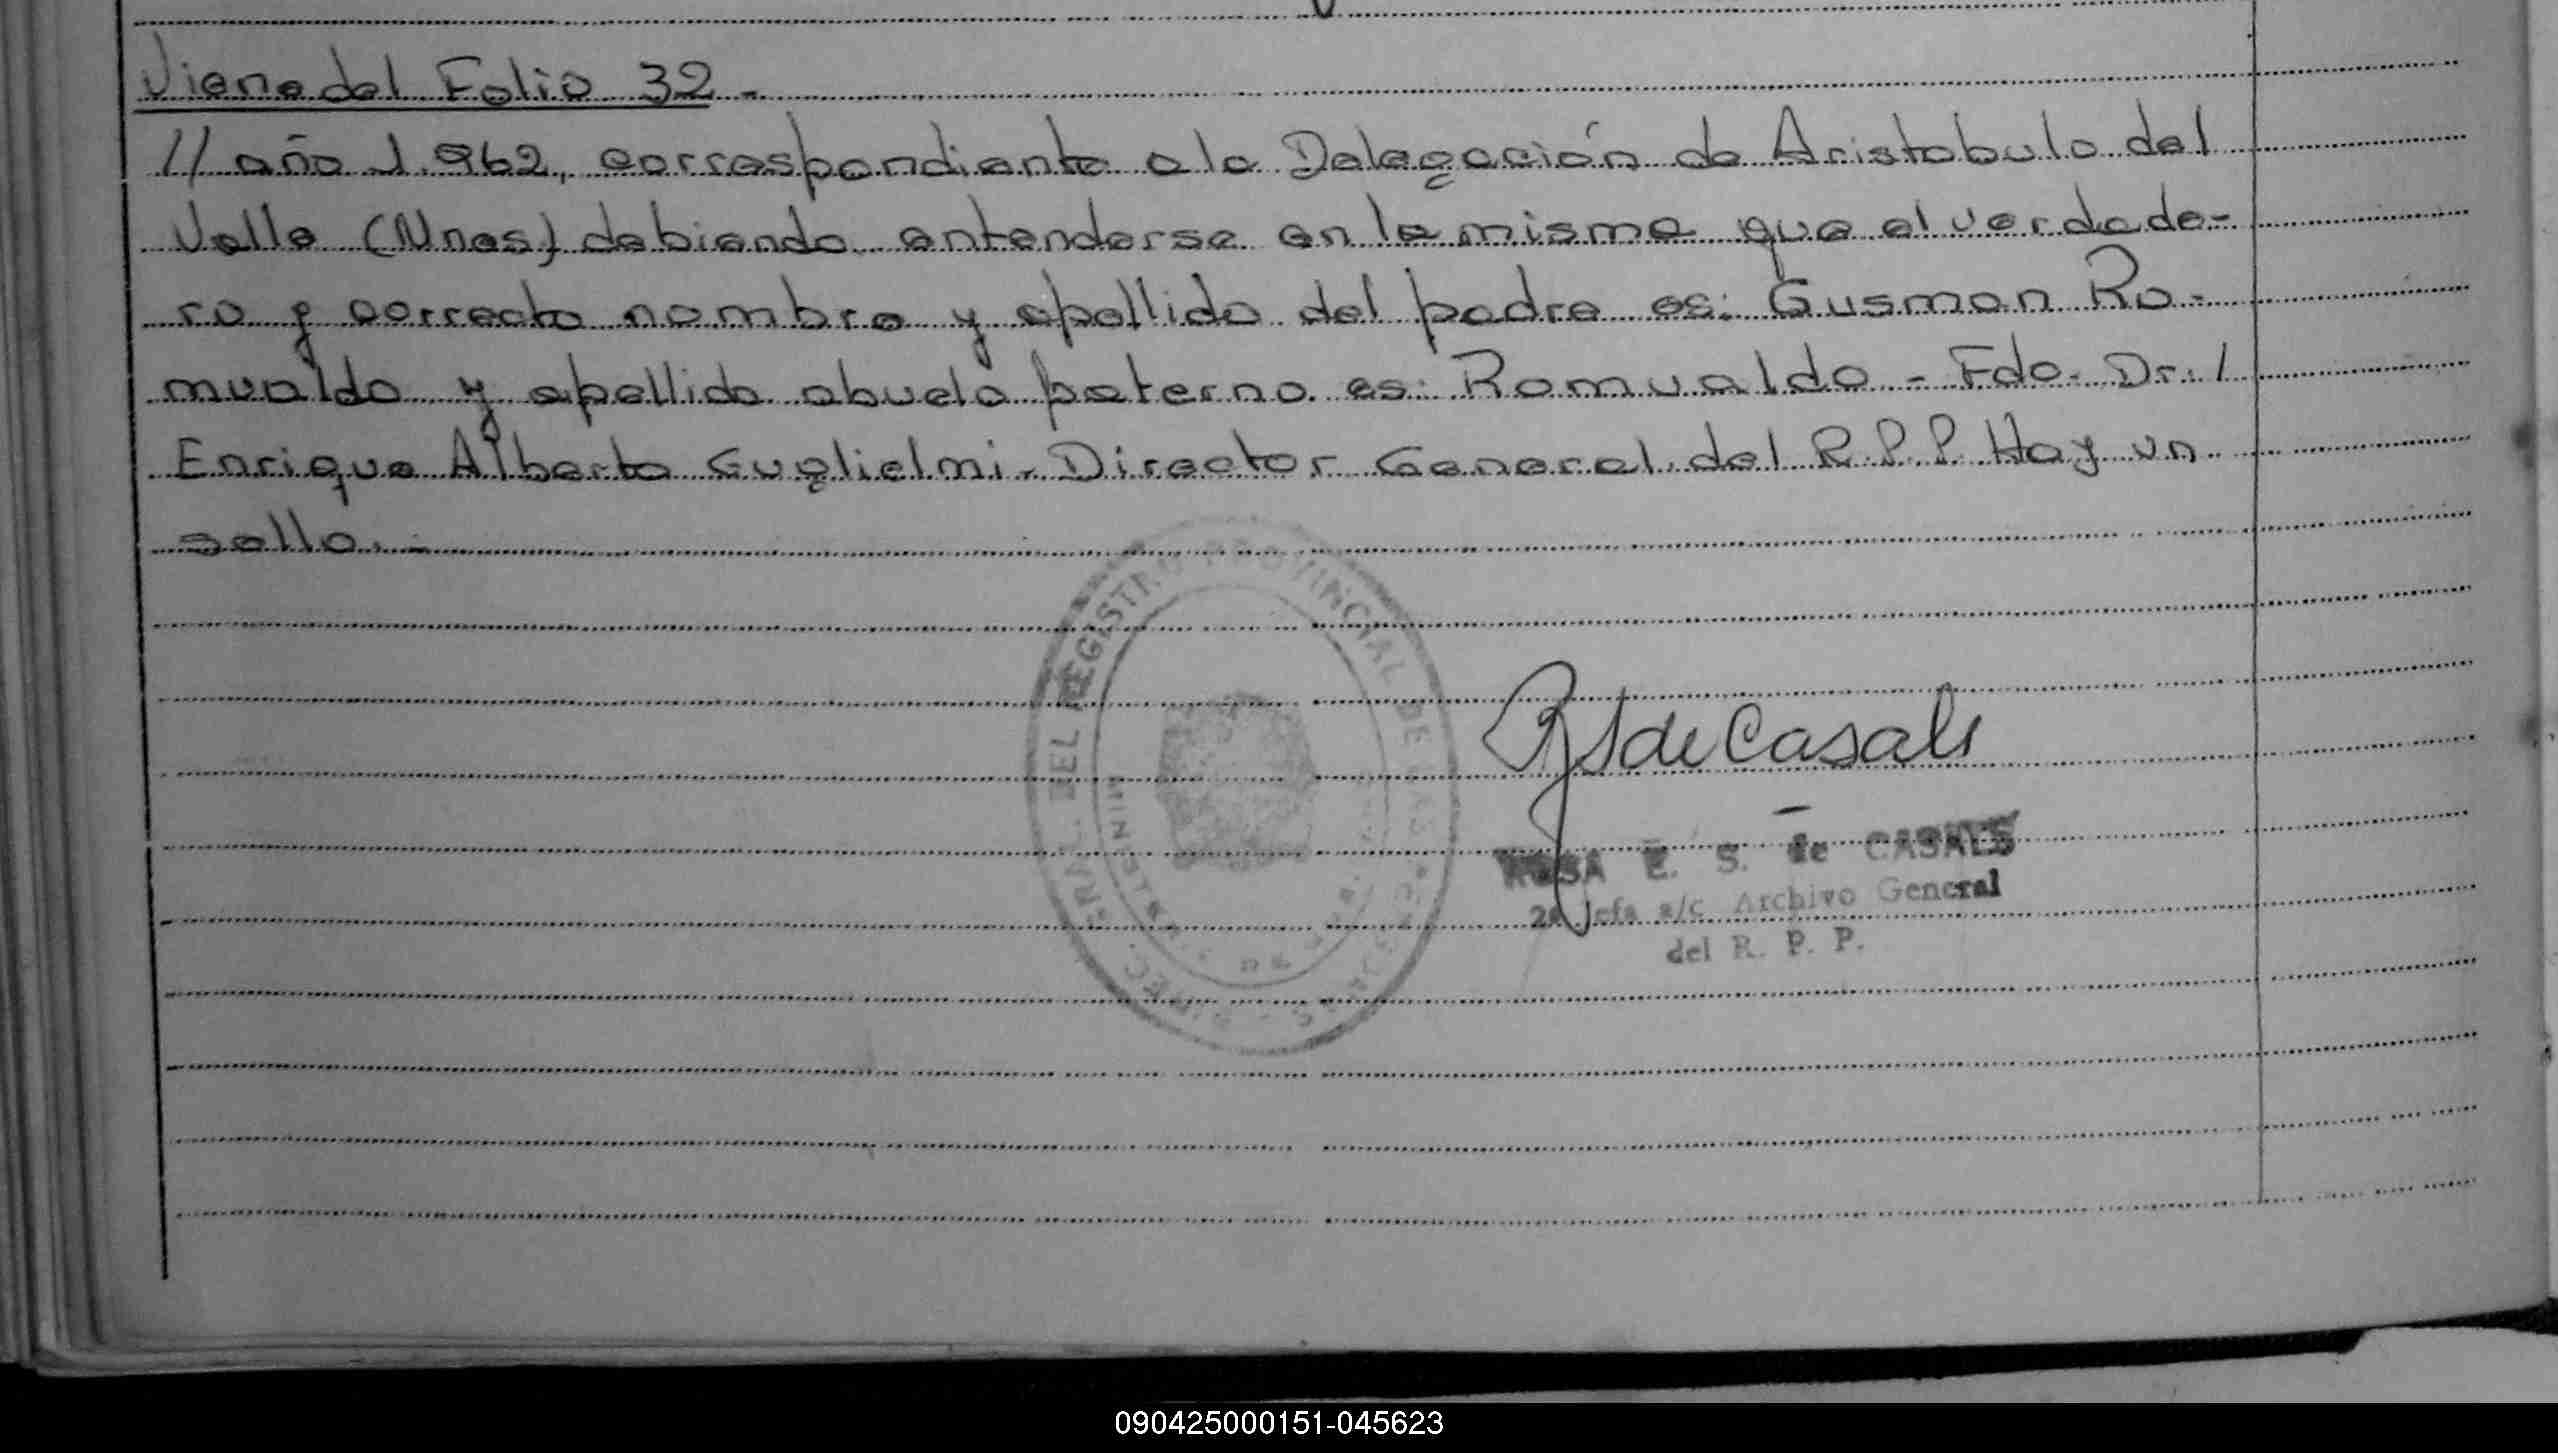 Viene del Folio 32.-
// año 1.962, correspondiente a la Delegación de Aristobulo del
Valle (Mnes) debiendo entenderse en la misma que el verdade-
ro y correcto nombre y apellido del padre es: Gusman Ro-
mualdo y apellido abuelo paterno es: Romualdo - Fdo. Dr. /
Enrique Alberto Guglielmi - Director General del R.P.P. Hay un
sello.-
DEL REGISTRO PROVINCIAL DE LAS
MINISTERIO DE
R S de Casals
ROSA E. S. de CASALS
2a Jefa a/c Archivo General
del R. P. P.
090425000151-045623